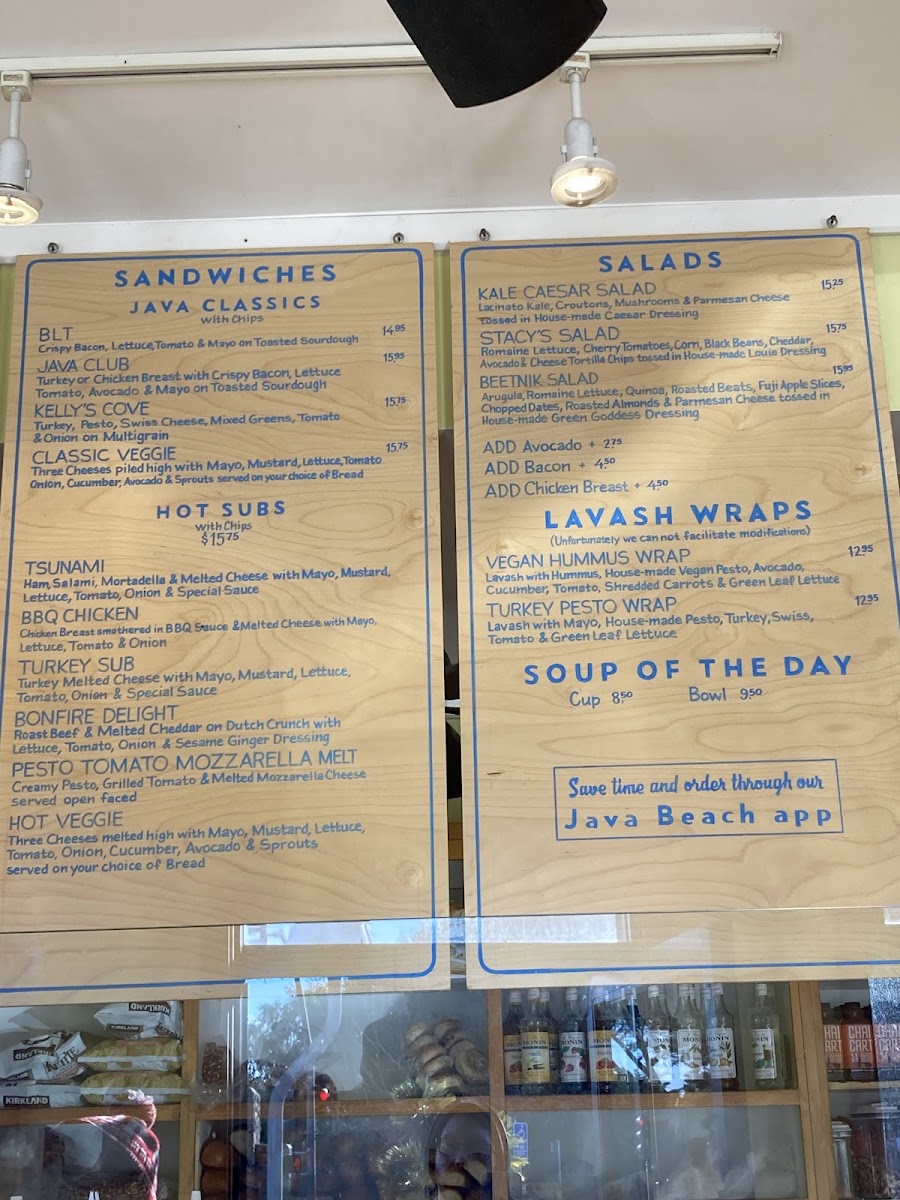 SANDWICHES
JAVA CLASSICS
with Chips
BLT 14.95
Crispy Bacon, Lettuce, Tomato & Mayo on Toasted Sourdough
JAVA CLUB 15.95
Turkey or Chicken Breast with Crispy Bacon, Lettuce
Tomato, Avocado & Mayo on Toasted Sourdough
KELLY'S COVE 15.75
Turkey, Pesto, Swiss Cheese, Mixed Greens, Tomato
& Onion on Multigrain
CLASSIC VEGGIE 15.75
Three Cheeses piled high with Mayo, Mustard, Lettuce, Tomato
Onion, Cucumber, Avocado & Sprouts served on your choice of Bread
HOT SUBS
with Chips
$15.75
TSUNAMI
Ham, Salami, Mortadella & Melted Cheese with Mayo, Mustard,
Lettuce, Tomato, Onion & Special Sauce
BBQ CHICKEN
Chicken Breast smothered in BBQ Sauce & Melted Cheese with Mayo,
Lettuce, Tomato & Onion
TURKEY SUB
Turkey Melted Cheese with Mayo, Mustard, Lettuce,
Tomato, Onion & Special Sauce
BONFIRE DELIGHT
Roast Beef & Melted Cheddar on Dutch Crunch with
Lettuce, Tomato, Onion & Sesame Ginger Dressing
PESTO TOMATO MOZZARELLA MELT
Creamy Pesto, Grilled Tomato & Melted Mozzarella Cheese
served open faced
HOT VEGGIE
Three Cheeses melted high with Mayo, Mustard, Lettuce,
Tomato, Onion, Cucumber, Avocado & Sprouts
served on your choice of Bread
SALADS
KALE CAESAR SALAD 15.25
Lacinato Kale, Croutons, Mushrooms & Parmesan Cheese
tossed in House-made Caesar Dressing
STACY'S SALAD 15.75
Romaine Lettuce, Cherry Tomatoes, Corn, Black Beans, Cheddar,
Avocado & Cheese Tortilla Chips tossed in House-made Louie Dressing
BEETNIK SALAD 15.95
Arugula, Romaine Lettuce, Quinoa, Roasted Beats, Fuji Apple Slices,
Chopped Dates, Roasted Almonds & Parmesan Cheese tossed in
House-made Green Goddess Dressing
ADD Avocado + 2.75
ADD Bacon + 4.50
ADD Chicken Breast + 4.50
LAVASH WRAPS
(Unfortunately we can not facilitate modifications)
VEGAN HUMMUS WRAP 12.95
Lavash with Hummus, House-made Vegan Pesto, Avocado,
Cucumber, Tomato, Shredded Carrots & Green Leaf Lettuce
TURKEY PESTO WRAP 12.95
Lavash with Mayo, House-made Pesto, Turkey, Swiss,
Tomato & Green Leaf Lettuce
SOUP OF THE DAY
Cup 8.50 Bowl 9.50
Save time and order through our
Java Beach app
KIRKLAND
KIRKLAND
KIRKLAND
MONIN
CHAI
CART